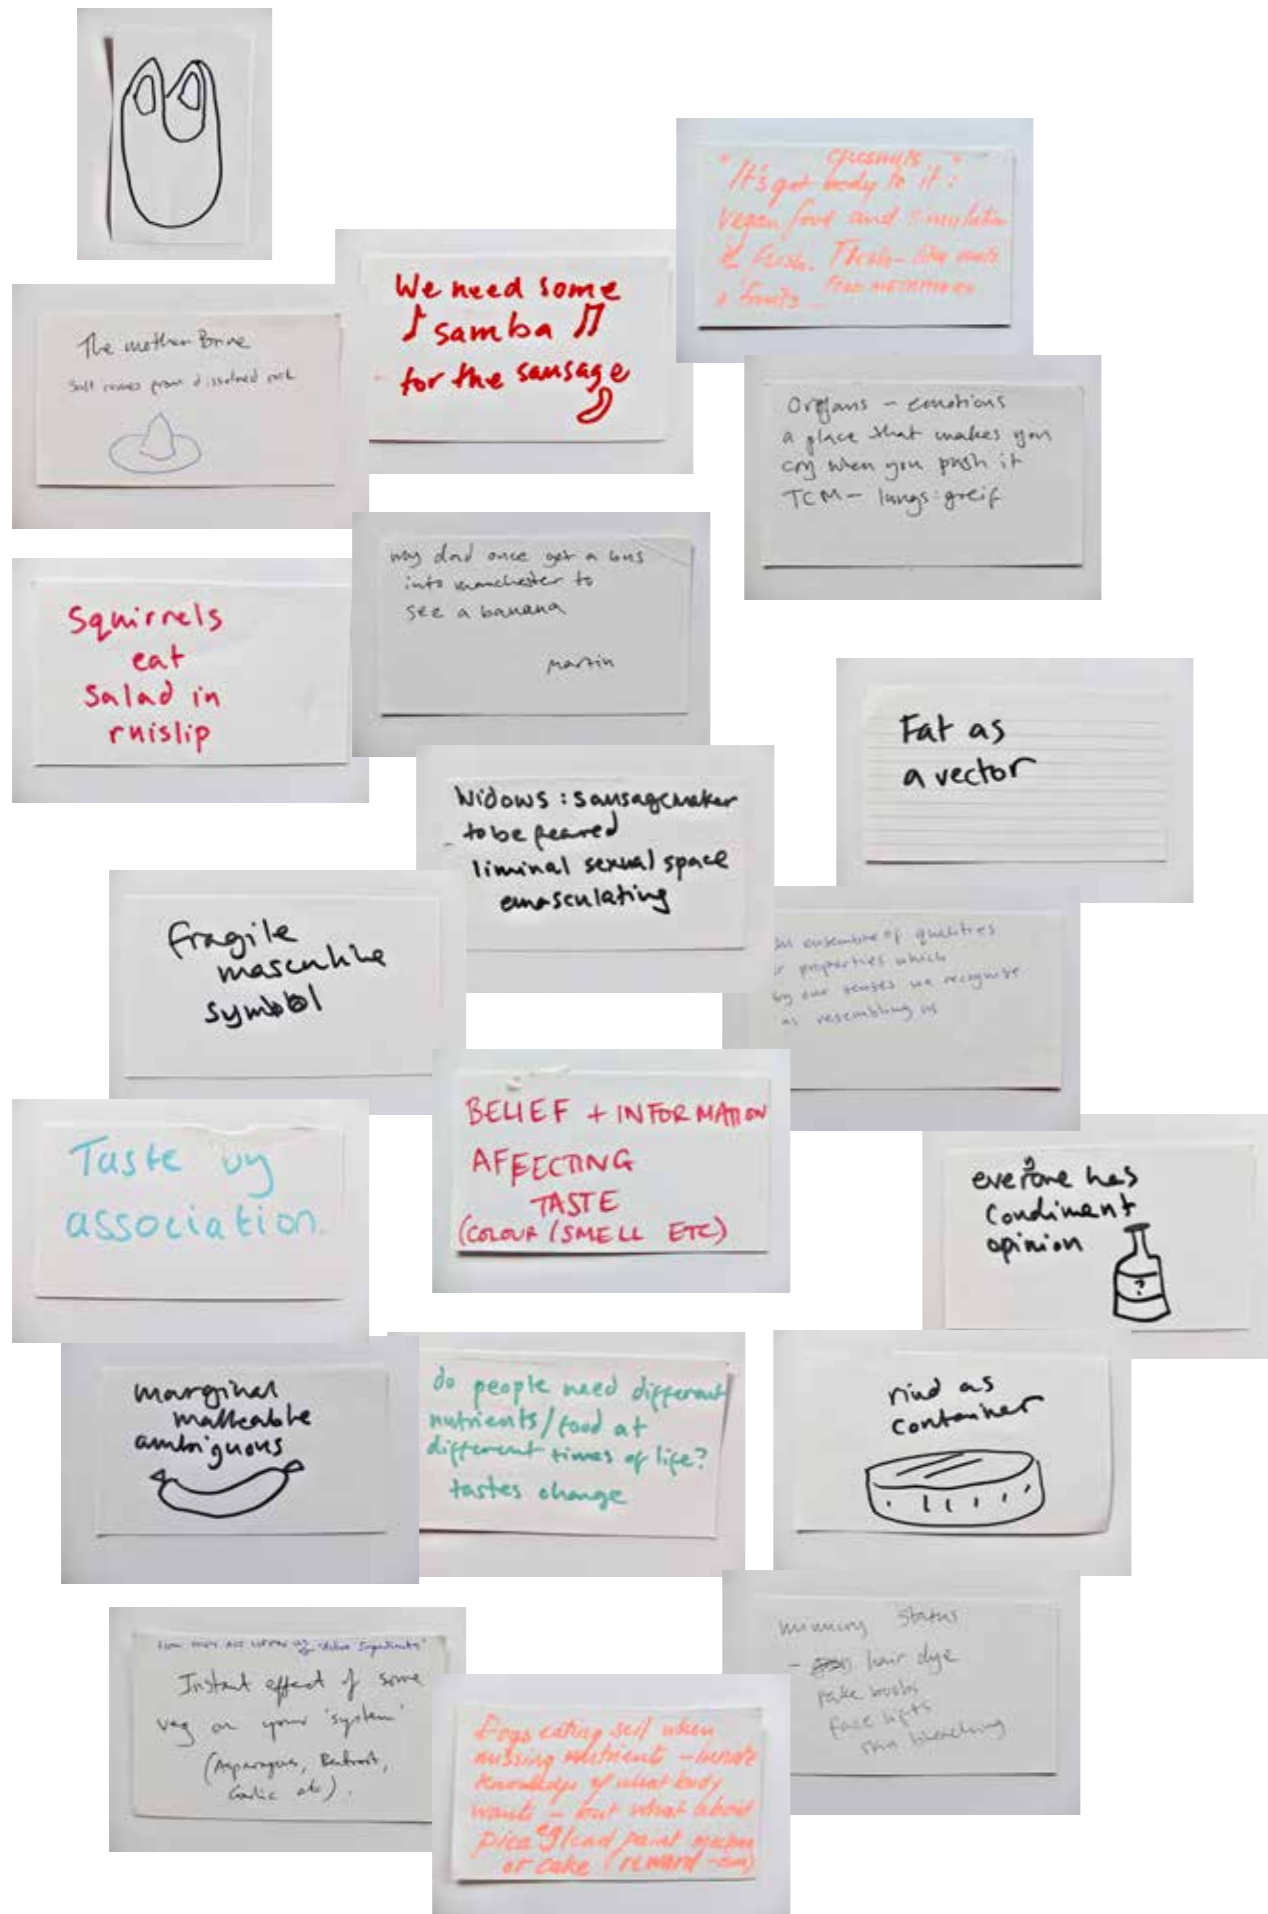 chesnuts
"It's got body to it":
Vegan food and simulation
of flesh. Flesh-like nuts
+ fruits - food metaphors
We need some
samba
for the sausage
The mother Brine
Salt comes from dissolved rock
Organs - emotions
a place that makes you
cry when you push it
TCM - lungs: greif
my dad once got a bus
into manchester to
see a banana
martin
Squirrels
eat
Salad in
ruislip
Fat as
a vector
Widows: sausagemaker
to be feared
liminal sexual space
emasculating
fragile
masculine
symbol
ensemble of qualities
properties which
by our senses we recognise
as resembling us
BELIEF + INFORMATION
AFFECTING
TASTE
(COLOUR / SMELL ETC)
Taste by
association.
everyone has
condiment
opinion
?
marginal
malleable
ambiguous
do people need different
nutrients/food at
different times of life?
tastes change
rind as
container
mimicry status
- hair dye
fake boobs
face lifts
skin bleaching
"Active Ingredients"
Instant effect of some
veg on your 'system'
(Asparagus, Beetroot,
Garlic etc).
Dogs eating soil when
missing nutrient - innate
knowledge of what body
wants - but what about
pica eg lead paint
or cake (reward